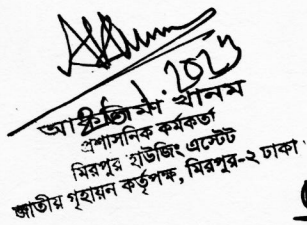 খানম
প্রশাসনিক কর্মকর্তা
মিরপুর হাউজিং এস্টেট
জাতীয় গৃহায়ন কর্তৃপক্ষ, মিরপুর-২ ঢাকা